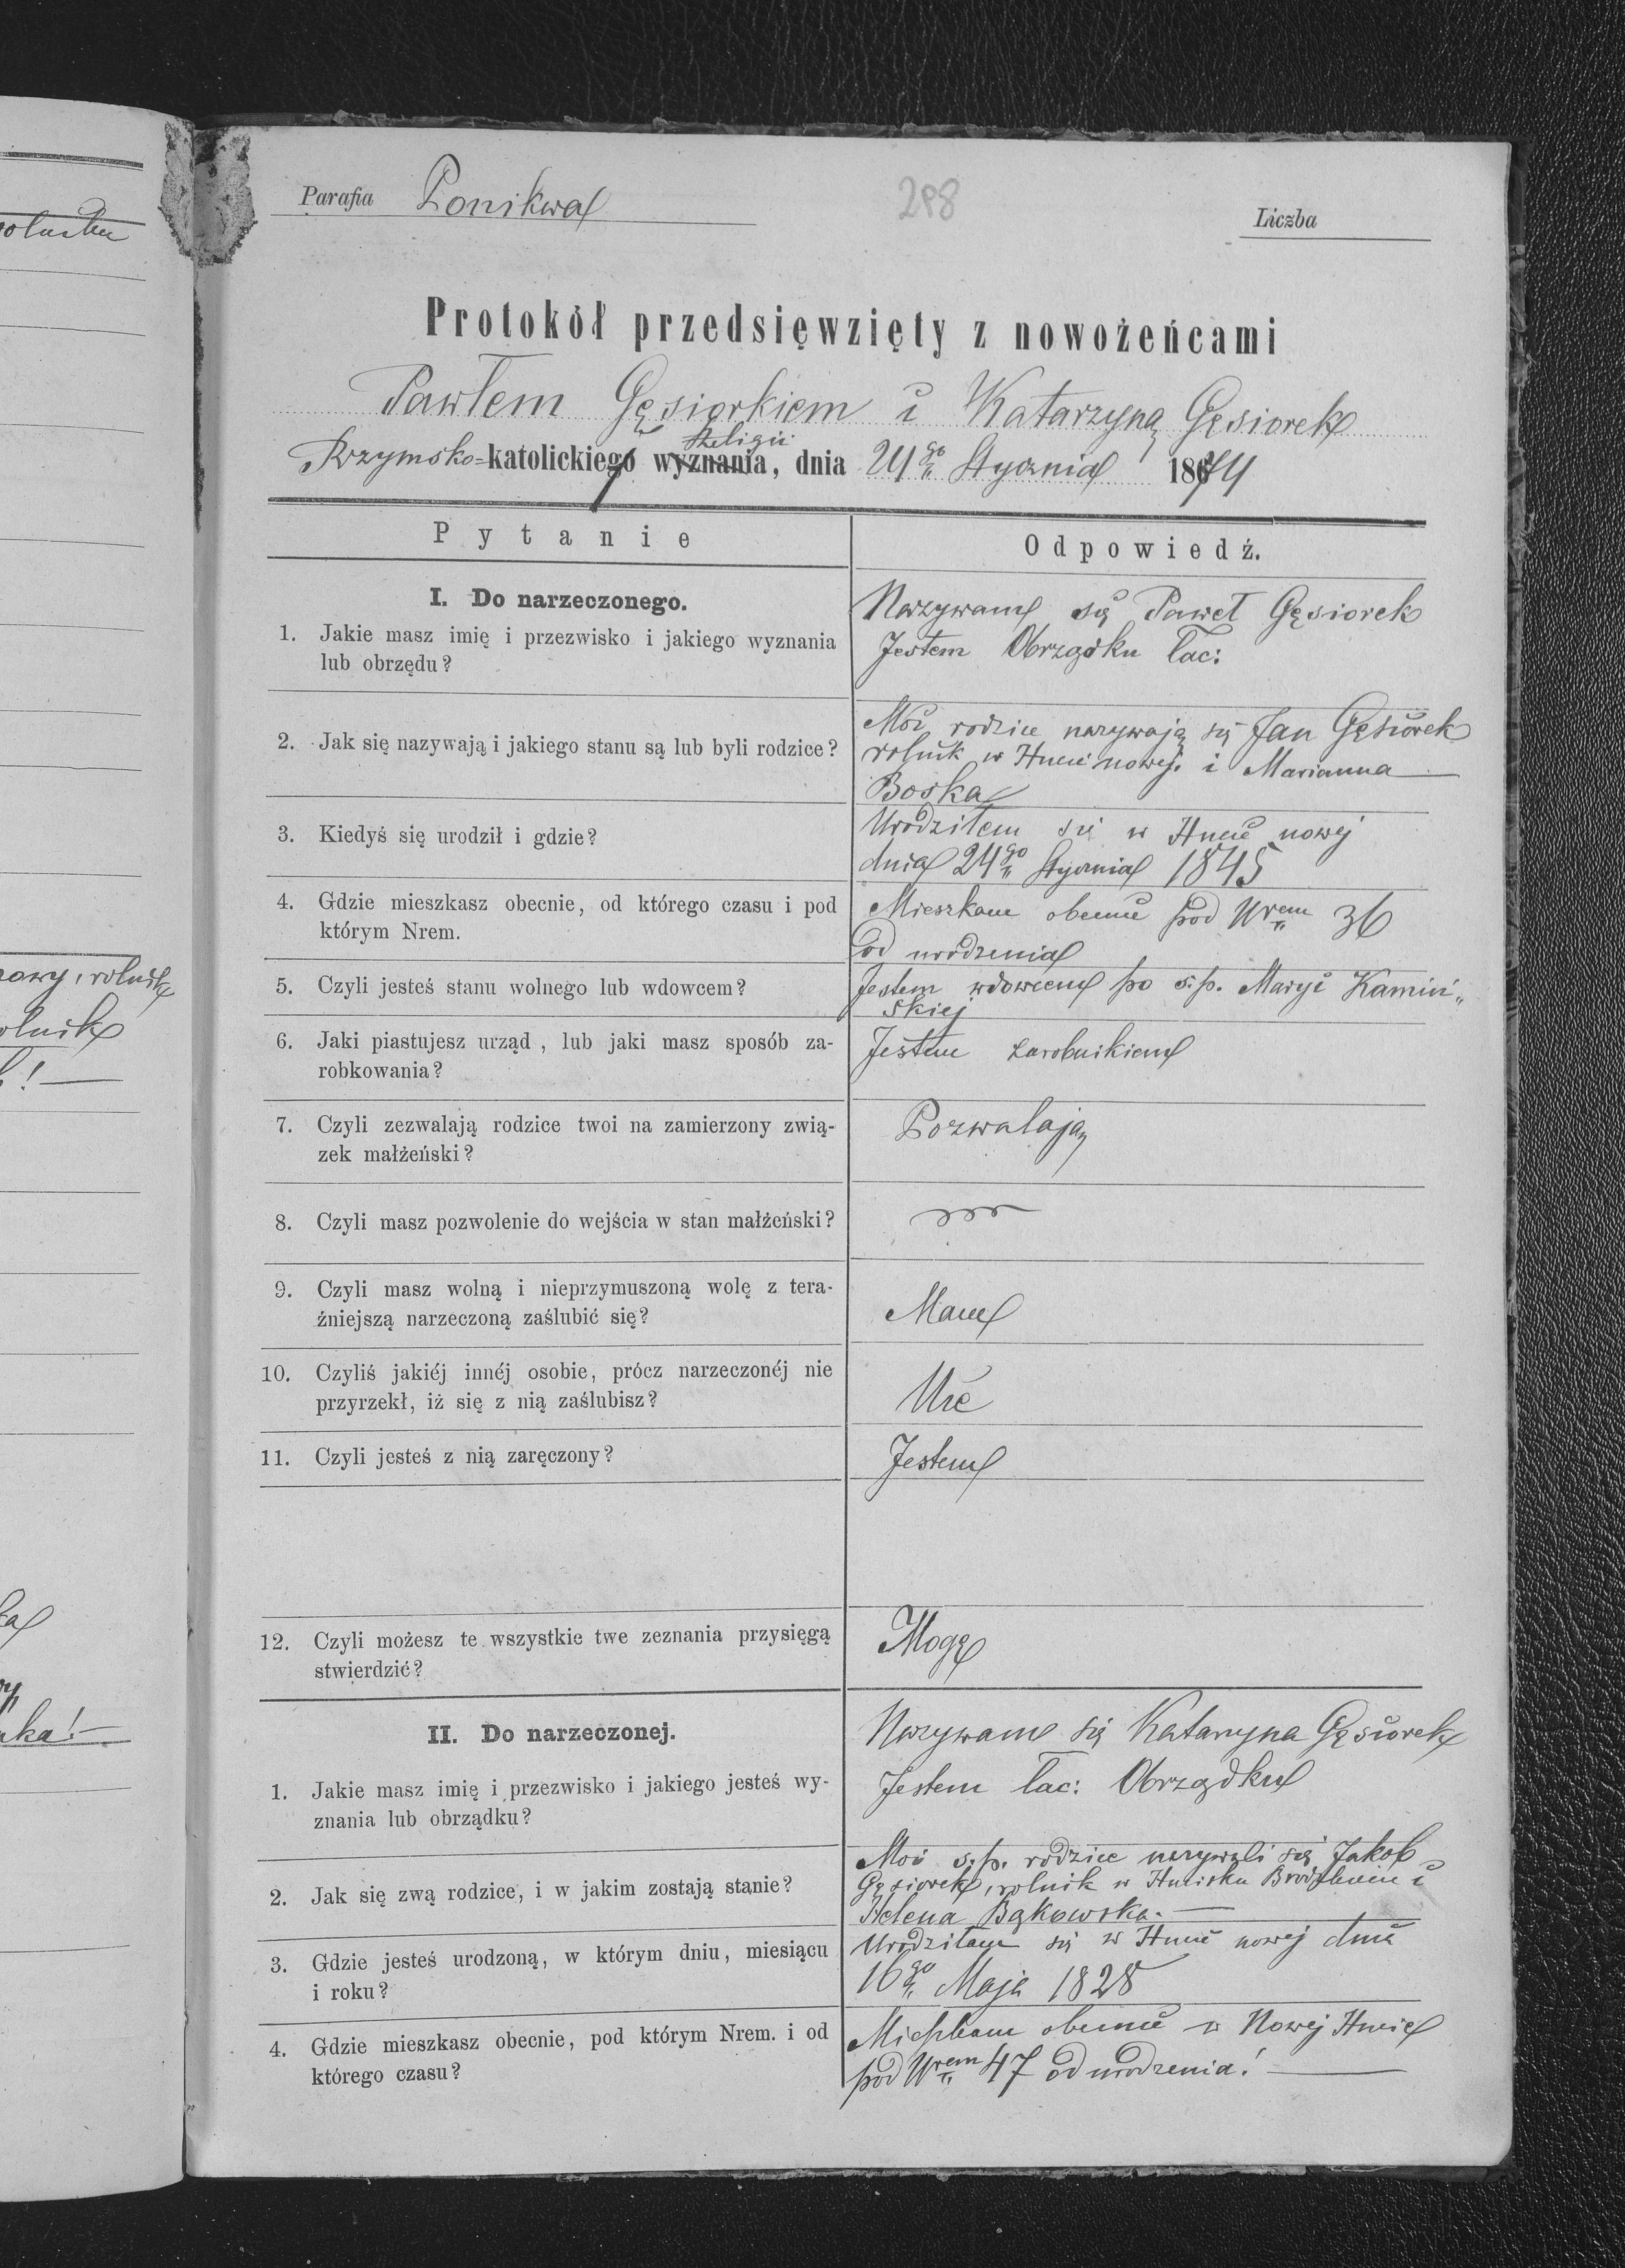 oluska
Parafia Ponikwa
298
Liczba
Protokół przedsięwzięty z nowożeńcami
Pawłem Gęsiorkiem i Katarzyną Gęsiorek
Religii
Rzymsko-katolickiego wyznania, dnia 24go Stycznia 1874
Pytanie
Odpowiedź.
I. Do narzeczonego.
1. Jakie masz imię i przezwisko i jakiego wyznania
lub obrzędu?
Nazywam się Paweł Gęsiorek
Jestem Obrządku łac:
2. Jak się nazywają i jakiego stanu są lub byli rodzice?
Moi rodzice nazywają się Jan Gęsiorek
rolnik w Hucie nowej. i Marianna
Boska
3. Kiedyś się urodził i gdzie?
Urodziłem się w Hucie nowej
dnia 24go Stycznia 1845
4. Gdzie mieszkasz obecnie, od którego czasu i pod
którym Nrem.
Mieszkam obecnie pod Nrem 36
od urodzenia
5. Czyli jesteś stanu wolnego lub wdowcem?
Jestem wdowcem po ś.p. Maryi Kamiń„
skiej
6. Jaki piastujesz urząd, lub jaki masz sposób za-
robkowania?
Jestem zarobnikiem
7. Czyli zezwalają rodzice twoi na zamierzony zwią-
zek małżeński?
Pozwalają
8. Czyli masz pozwolenie do wejścia w stan małżeński?
9. Czyli masz wolną i nieprzymuszoną wolę z tera-
źniejszą narzeczoną zaślubić się?
Mam
10. Czyliś jakiéj innéj osobie, prócz narzeczonéj nie
przyrzekł, iż się z nią zaślubisz?
Nie
11. Czyli jesteś z nią zaręczony?
Jestem
12. Czyli możesz te wszystkie twe zeznania przysięgą
stwierdzić?
Mogę
II. Do narzeczonej.
1. Jakie masz imię i przezwisko i jakiego jesteś wy-
znania lub obrządku?
Nazywam się Katarzyna Gęsiorek
Jestem łac: Obrządku
2. Jak się zwą rodzice, i w jakim zostają stanie?
Moi ś.p. rodzice nazywali się Jakob
Gęsiorek, rolnik w Hucisku Brodzkiem i
Helena Bąkowska.
3. Gdzie jesteś urodzoną, w którym dniu, miesiącu
i roku?
Urodziłam się w Hucie nowej dnia
16go Maja 1828
4. Gdzie mieszkasz obecnie, pod którym Nrem. i od
którego czasu?
Mieszkam obecnie w Nowej Hucie
pod Nrem 47 od urodzenia!